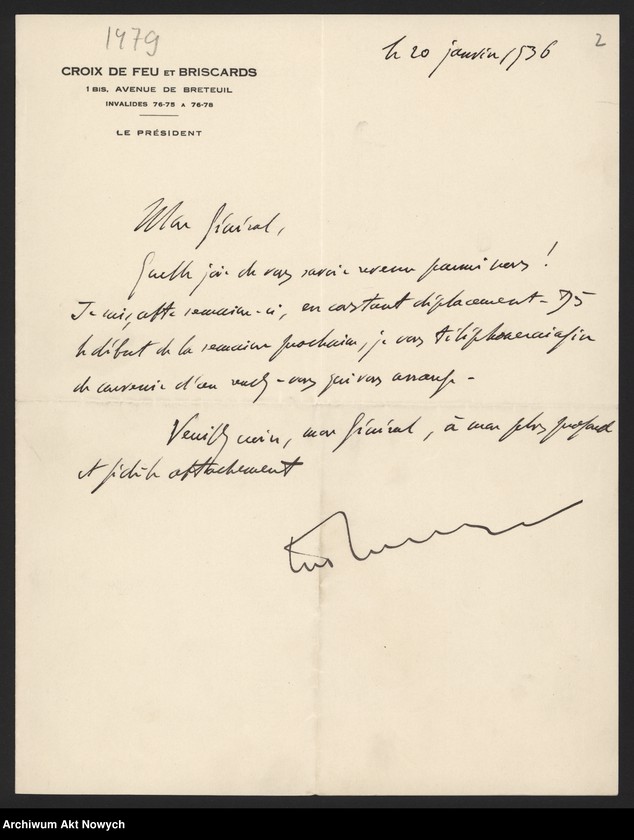 1479
2
le 20 janvier 1936
CROIX DE FEU ET BRISCARDS
1 BIS, AVENUE DE BRETEUIL
INVALIDES 76-75 A 76-78
LE PRÉSIDENT
Mon Général,
Quelle joie de vous savoir revenu parmi nous !
Je suis, cette semaine-ci, en constant déplacement - Dès
le début de la semaine prochaine, je vous téléphonerai afin
de convenir d'un rendez-vous qui vous arrange -
Veuillez croire, mon Général, à mon plus profond
et fidèle attachement
Archiwum Akt Nowych